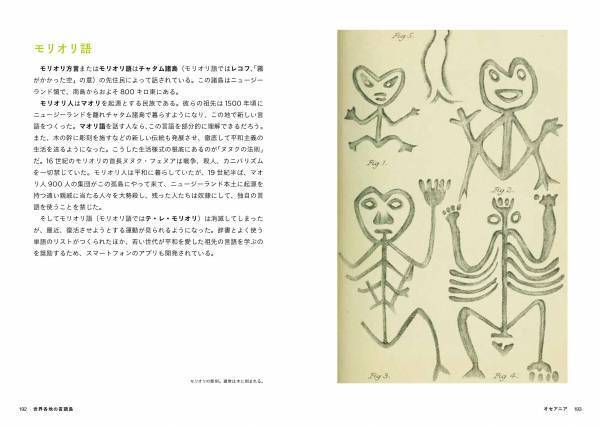 モリオリ語
モリオリ方言またはモリオリ語はチャタム諸島（モリオリ語ではレコフ、「霧
がかかった空」の意）の先住民によって話されている。この諸島はニュージー
ランド領で、南島からおよそ800キロ東にある。
モリオリ人はマオリを起源とする民族である。彼らの祖先は1500年頃に
ニュージーランドを離れチャタム諸島で暮らすようになり、この地で新しい言
語をつくった。マオリ語を話す人なら、この言語を部分的に理解できるだろう。
また、木の幹に彫刻を施すなどの新しい伝統も発展させ、徹底して平和主義の
生活を送るようになった。こうした生活様式の根底にあるのが「ヌヌクの法則」
だ。16世紀のモリオリの首長ヌヌク・フェヌアは戦争、殺人、カニバリズム
を一切禁じていた。モリオリ人は平和に暮らしていたが、19世紀半ば、マオ
リ人900人の集団がこの孤島にやって来て、ニュージーランド本土に起源を
持つ遠い親戚に当たる人々を大勢殺し、残った人たちは奴隷にして、独自の言
語を使うことを禁じた。
そしてモリオリ語（モリオリ語ではテ・レ・モリオリ）は消滅してしまった
が、最近、復活させようとする運動が見られるようになった。辞書とよく使う
単語のリストがつくられたほか、若い世代が平和を愛した祖先の言語を学ぶの
を奨励するため、スマートフォンのアプリも開発されている。
モリオリの彫刻。通常は木に刻まれる。
192 世界各地の言語島
Fig 5.
Fig 1.
Fig 2.
Fig 3.
Fig 4.
オセアニア 193